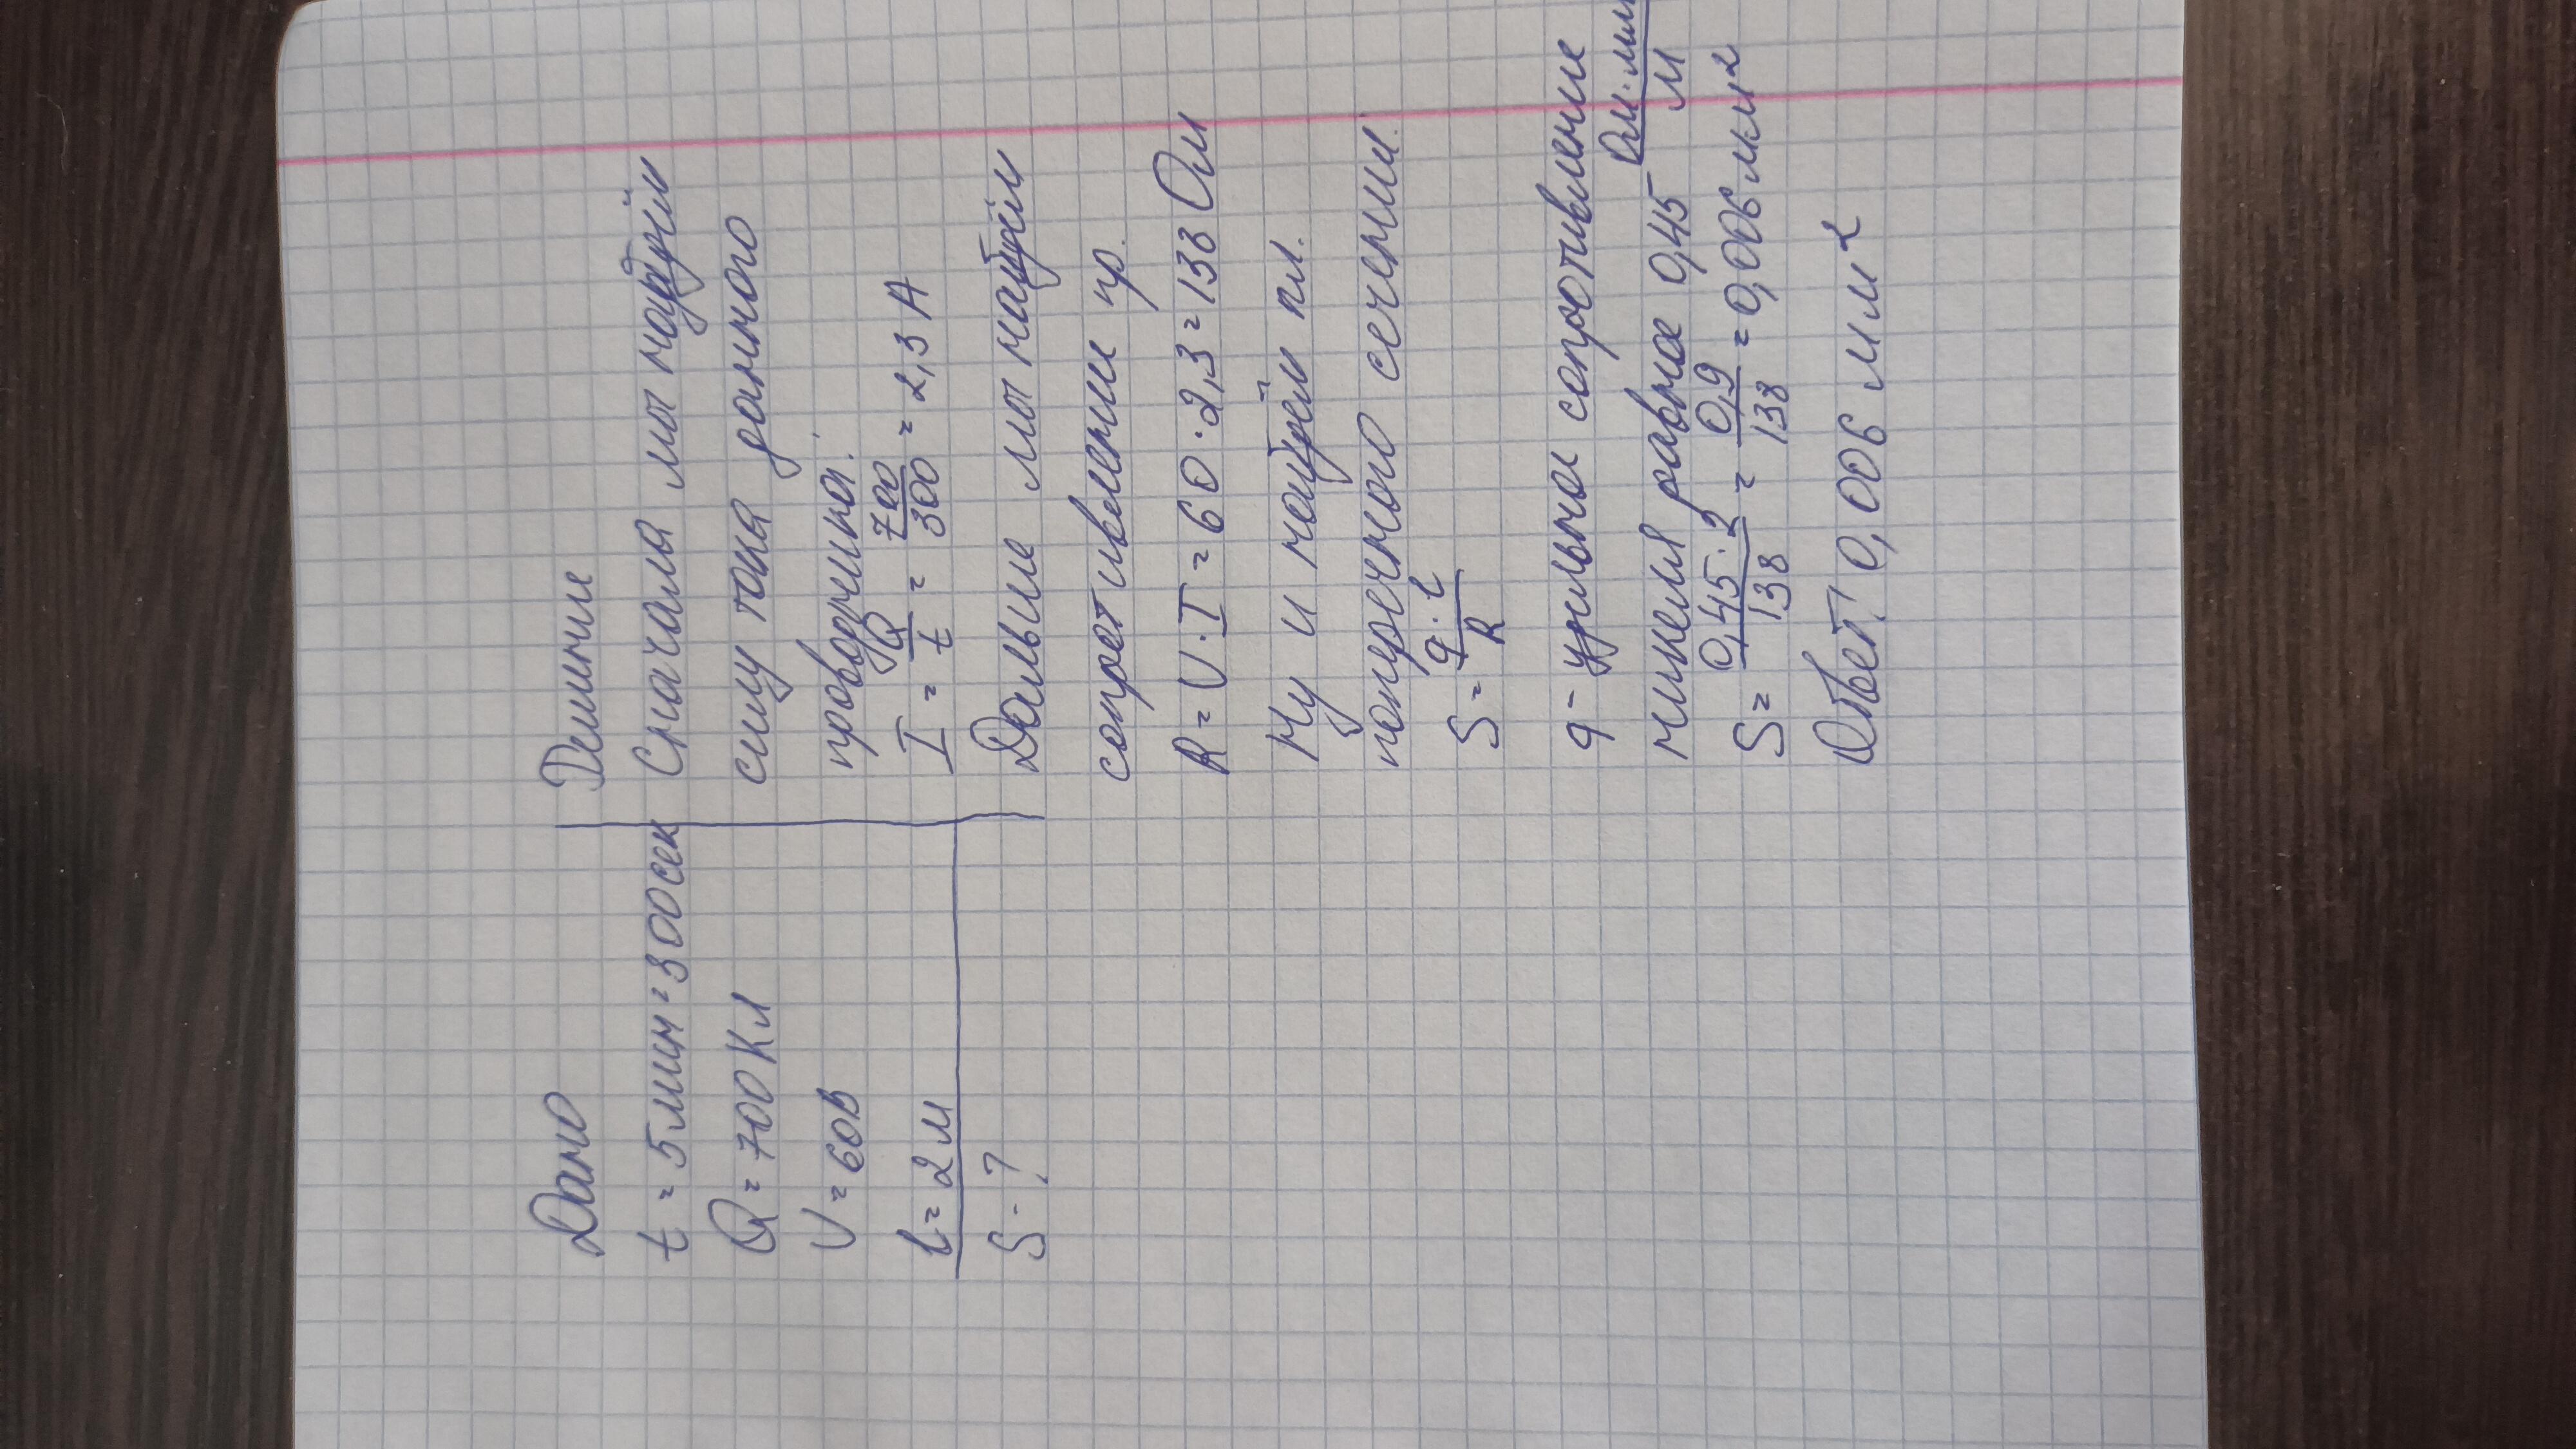 Дано
t = 5 мин = 300 сек
Q = 700 Кл
U = 60 В
l = 2 м
S - ?
Решение
Сначала мы найдём
силу тока данного
проводника:
I = Q/t = 700/300 = 2,3 А
Дальше мы найдём
сопротивление пр.
R = U · I = 60 · 2,3 = 138 Ом
Ну и найдём пл.
поперечного сечения:
S = q · l / R
q - удельное сопротивление
никеля равное 0,45 Ом · мм / м
S = 0,45 · 2 / 138 = 0,9 / 138 = 0,006 мм2
Ответ: 0,006 мм2